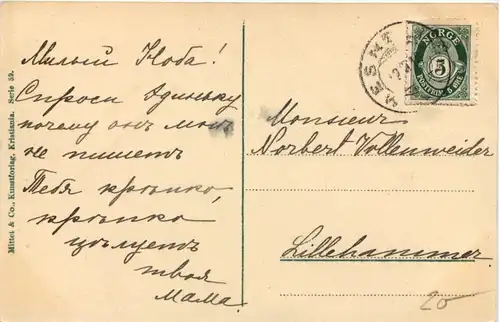 Милый Ноба!
Спроси Одиньку
почему онъ мнѣ
не пишетъ
Тебя крѣпко,
крѣпко
цѣлуетъ
твоя
Мама.
Monsieur
Norbert Vollenweider
Lillehammer
20
NORGE
5
POSTFRIM 5 ØRE
Mittet & Co., Kunstforlag, Kristiania. Serie 59.